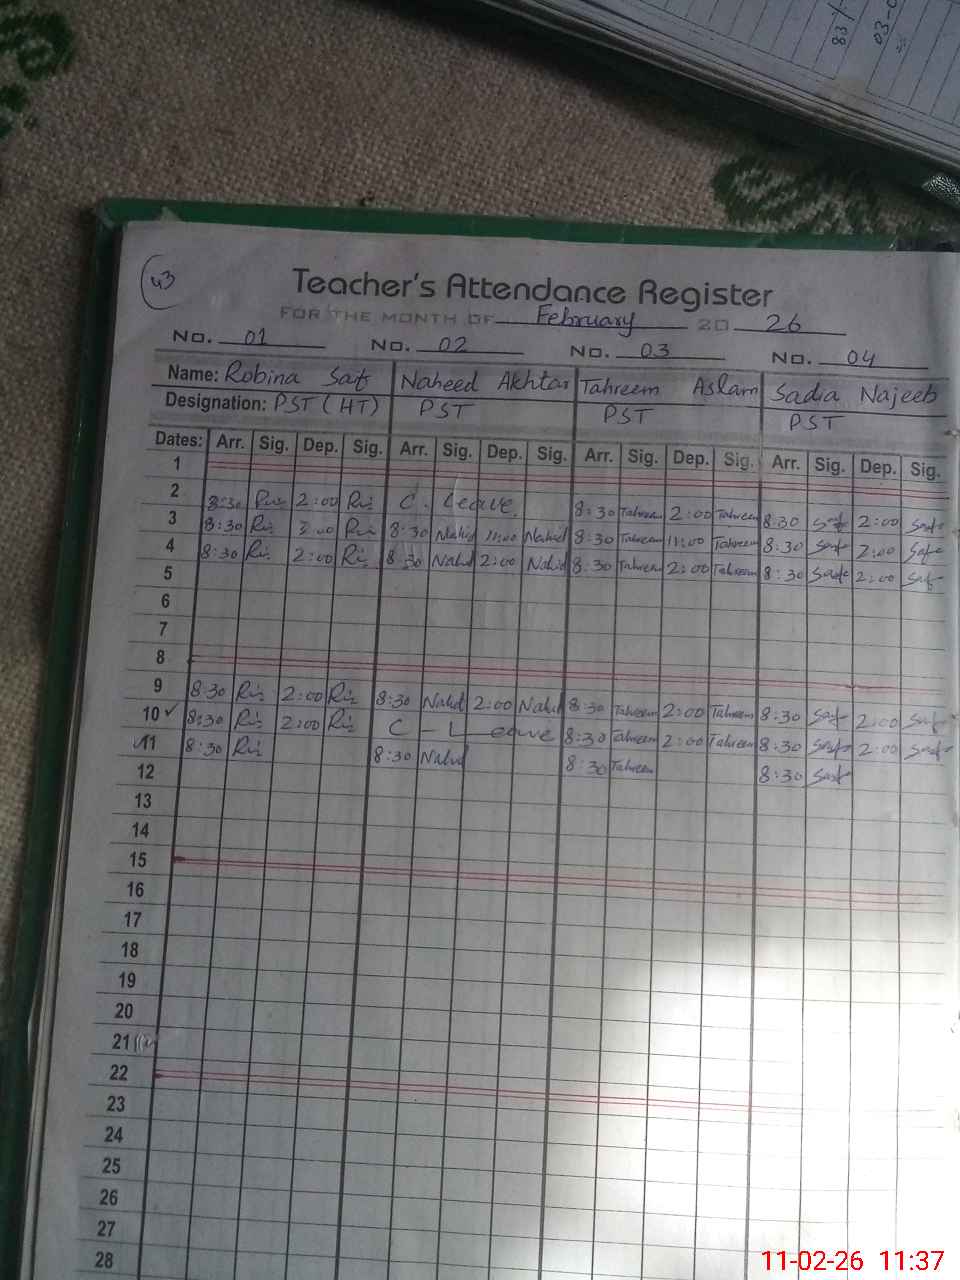 83/
03-0
43
Teacher's Attendance Register
FOR THE MONTH OF February 20 26
No. 01 No. 02 No. 03 No. 04
Name: Robina Saif Naheed Akhtar Tahreem Aslam Sadia Najeeb
Designation: PST (HT) PST PST PST
Dates: Arr. Sig. Dep. Sig. Arr. Sig. Dep. Sig. Arr. Sig. Dep. Sig. Arr. Sig. Dep. Sig.
1
2 8:30 2:00 C. Leave 8:30 Tahreem 2:00 Tahreem 8:30 2:00
3 8:30 8:30 Nahid 11:00 Nahid 8:30 Tahreem 11:00 Tahreem 8:30 2:00
4 8:30 2:00 8:30 Nahid 2:00 Nahid 8:30 Tahreem 2:00 Tahreem 8:30 2:00
5
6
7
8
9 8:30 2:00 8:30 Nahid 2:00 Nahid 8:30 Tahreem 2:00 Tahreem 8:30 2:00
10 8:30 2:00 C - Leave 8:30 Tahreem 2:00 Tahreem 8:30 2:00
11 8:30 8:30 Nahid 8:30 Tahreem 8:30
12
13
14
15
16
17
18
19
20
21
22
23
24
25
26
27
28
11-02-26 11:37